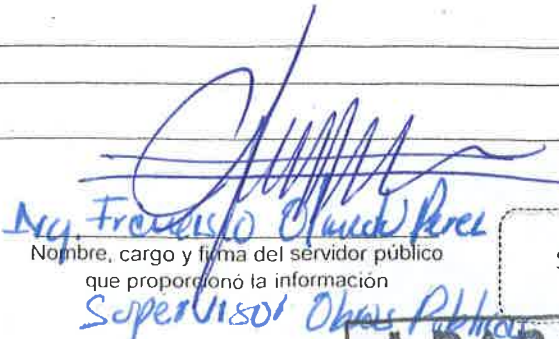 Ing. Francisco Perez
Nombre, cargo y firma del servidor público
que proporcionó la información
Supervisor Obras Publicas